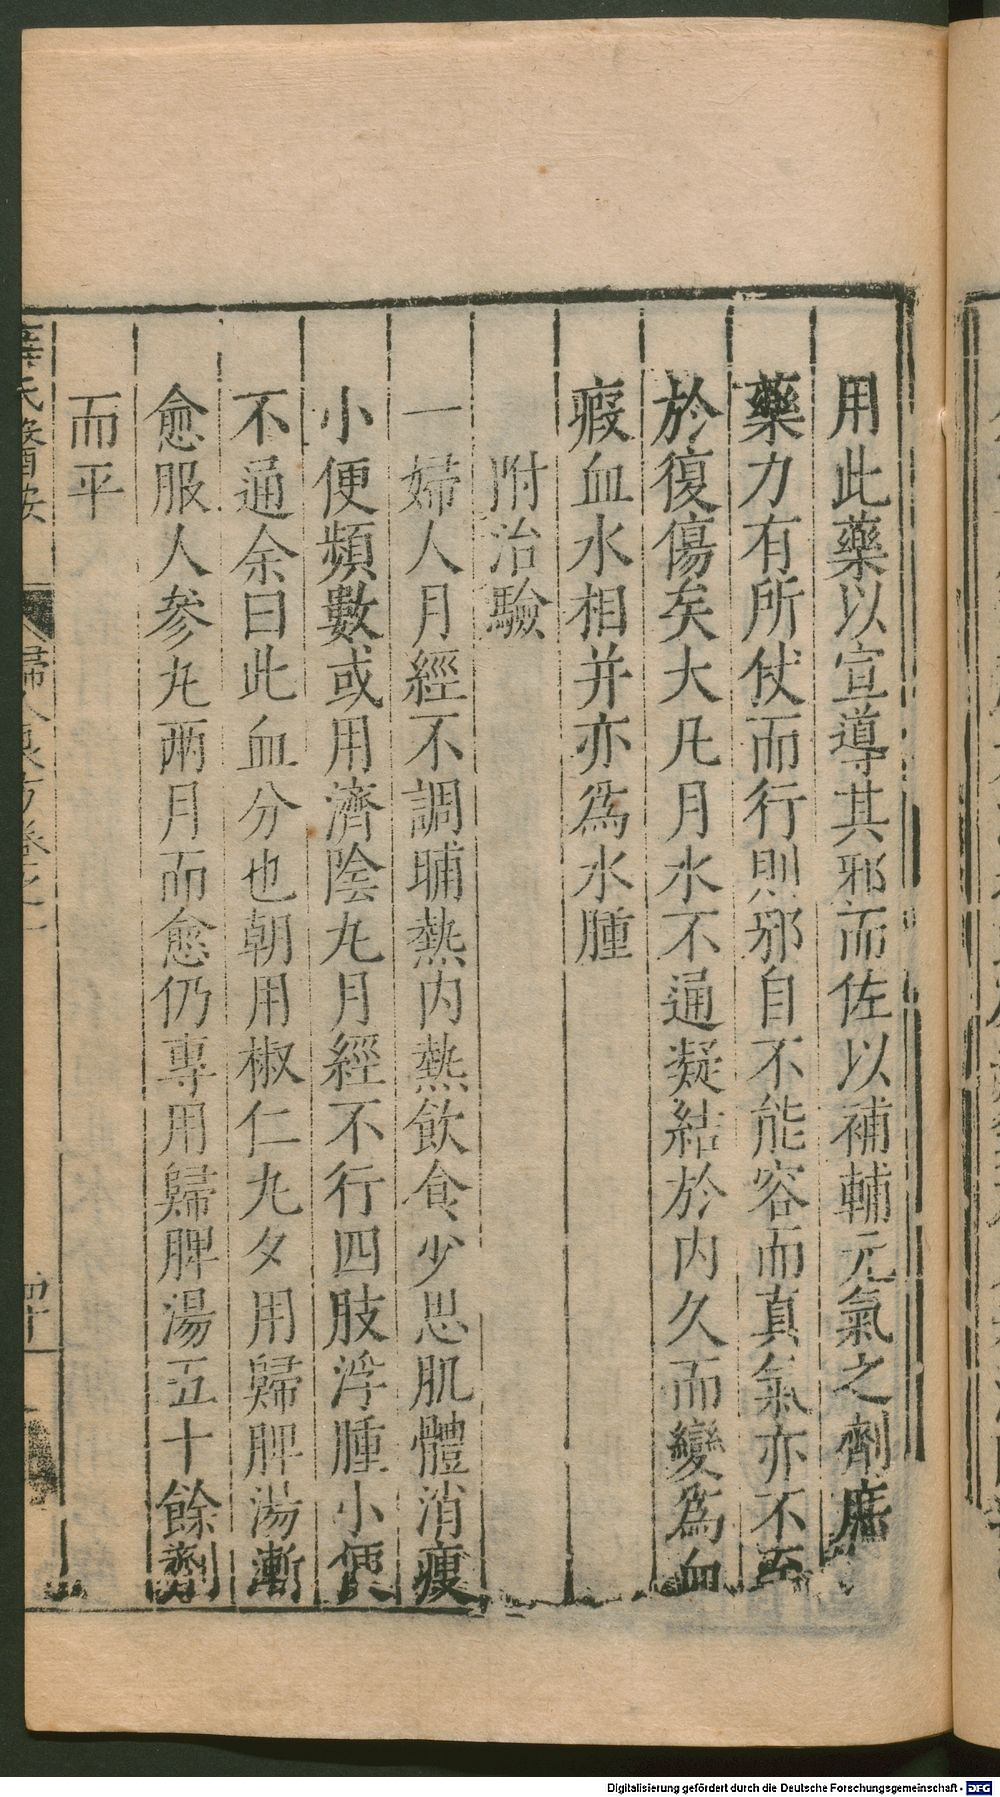 用此藥以宣導其邪而佐以補輔元氣之劑庶
藥力有所仗而行則邪自不能容而真氣亦不至
於復傷矣大凡月水不通凝結於内久而變爲血
瘕血水相并亦爲水腫
附治驗
一婦人月經不調晡熱内熱飲食少思肌體消瘦
小便頻數或用濟陰丸月經不行四肢浮腫小便
不通余曰此血分也朝用椒仁丸夕用歸脾湯漸
愈服人參丸兩月而愈仍專用歸脾湯五十餘劑
而平
薛氏醫按 婦人良方卷之一 四十
Digitalisierung gefördert durch die Deutsche Forschungsgemeinschaft - DFG